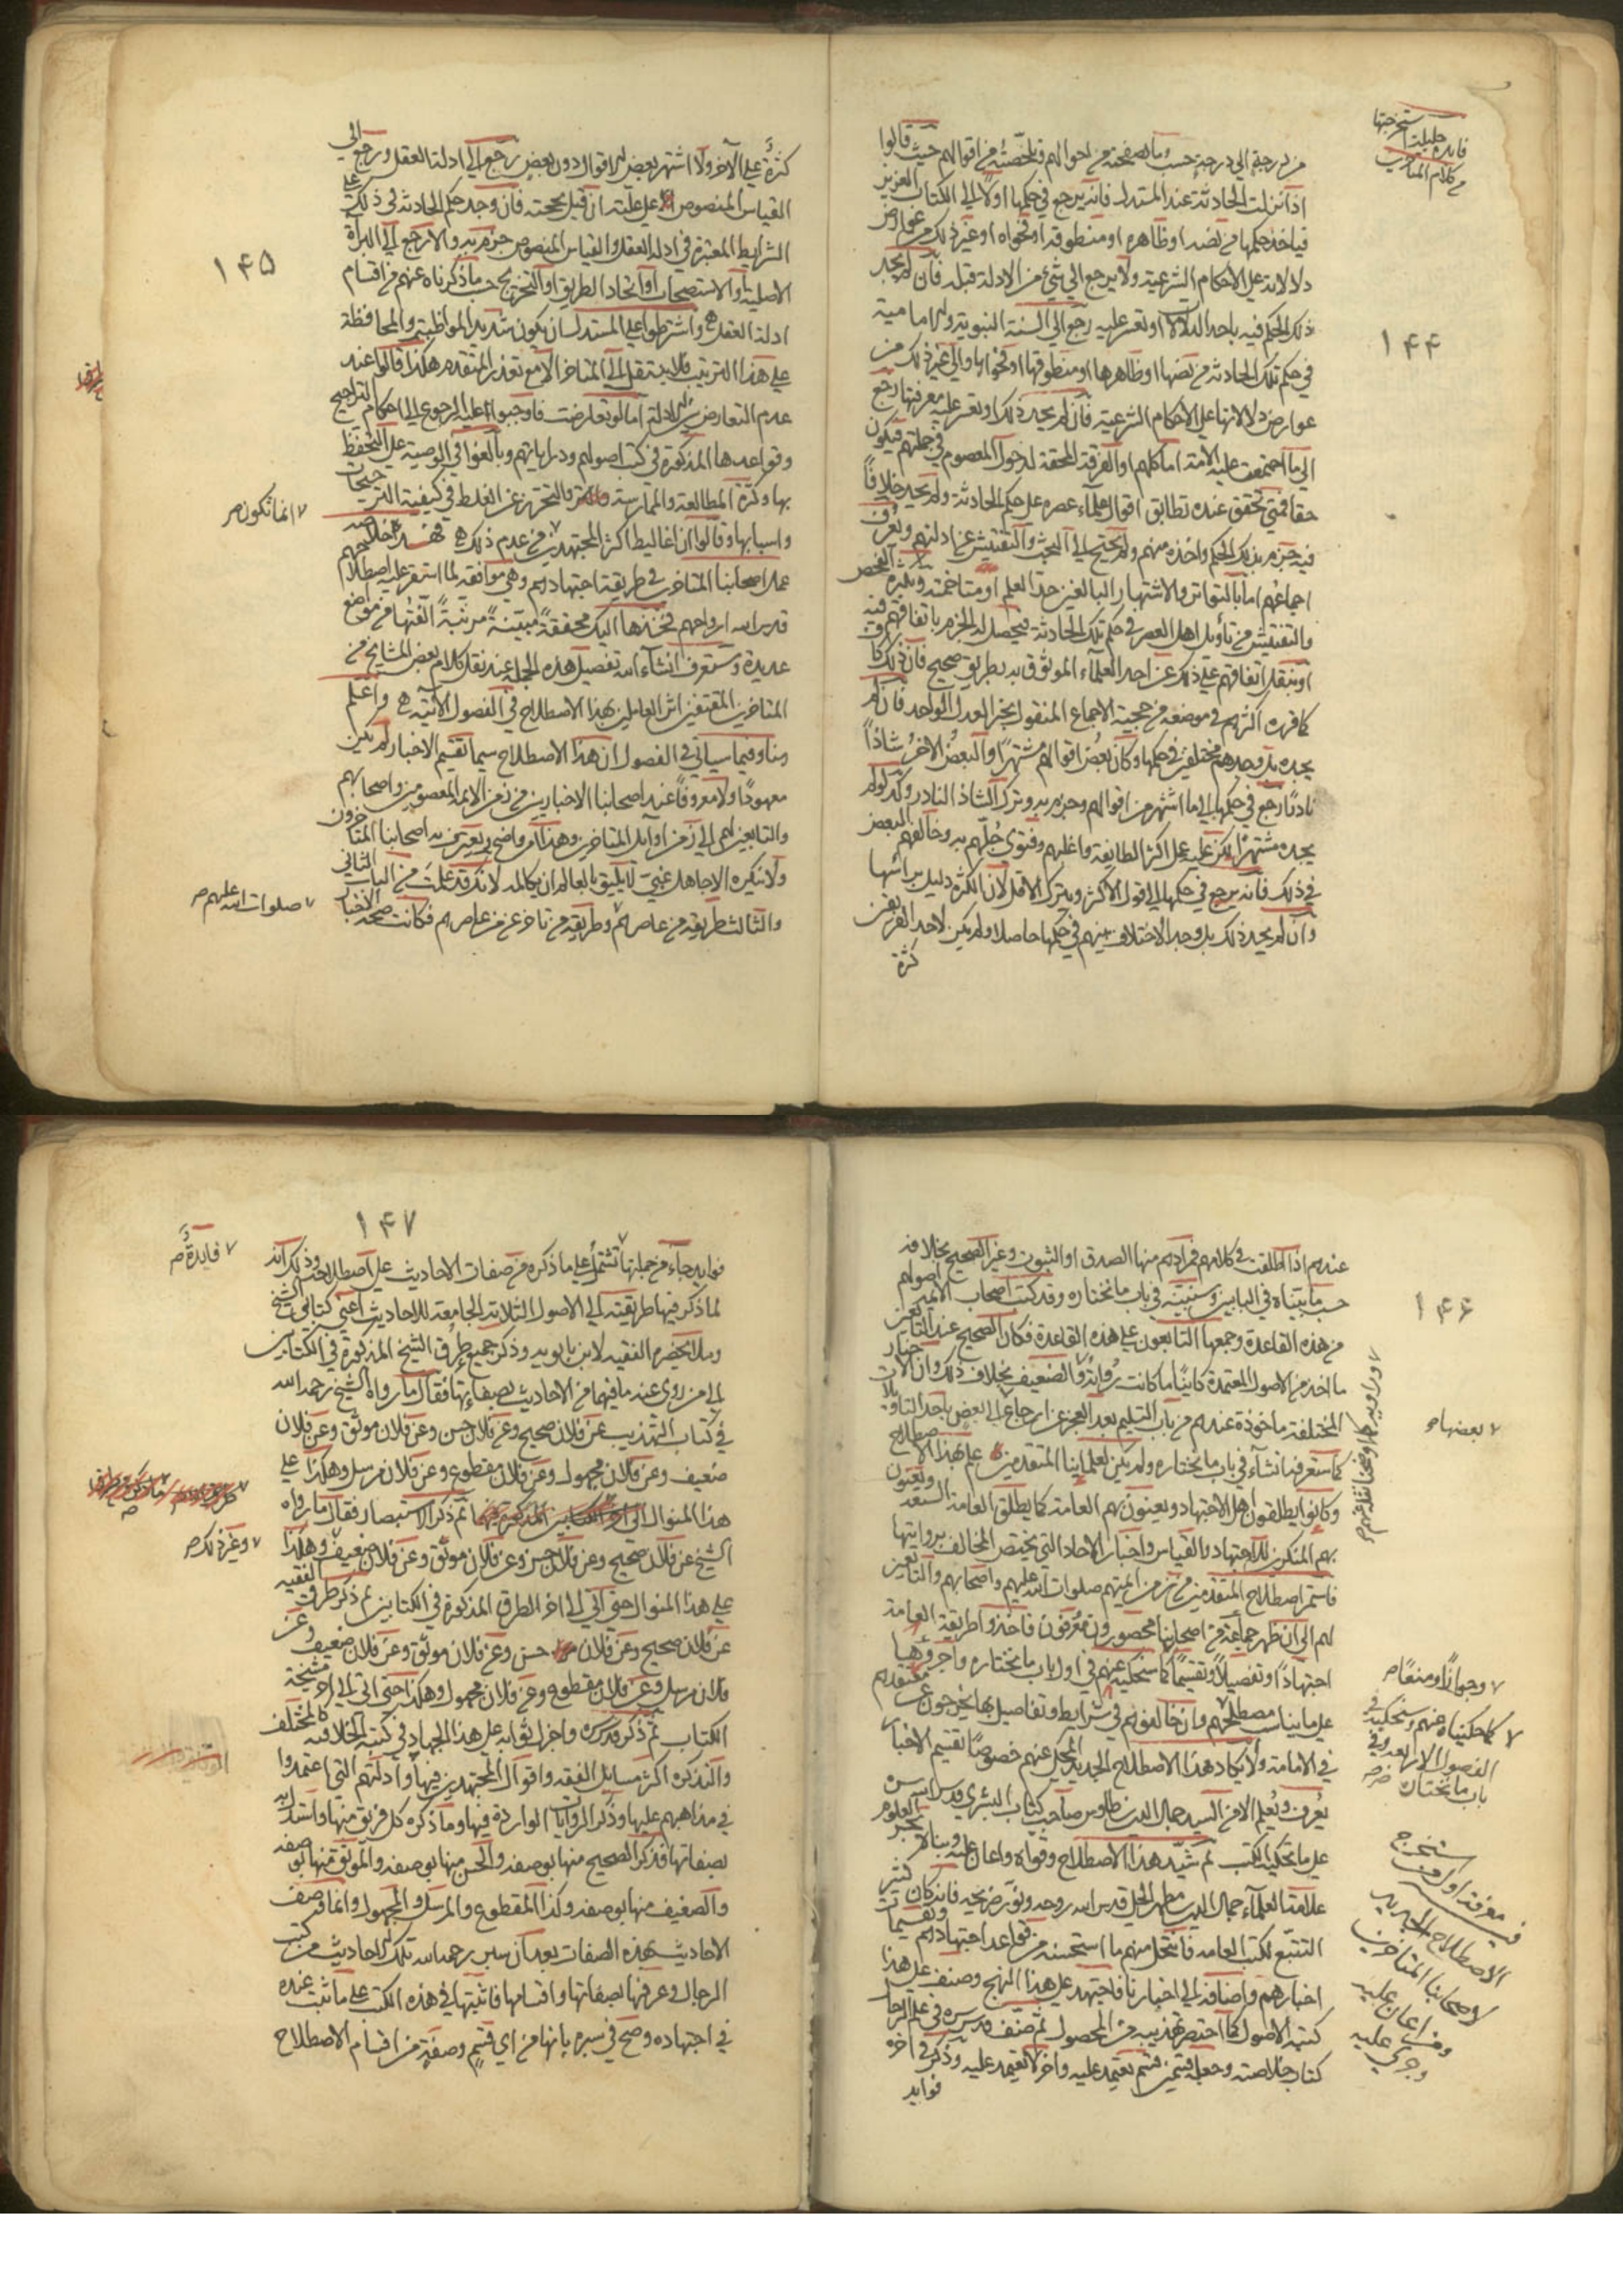 من درجة الى درجة حسب ما تصفحته من احوالهم وتلخصته من اقوالهم حيث قالوا
اذا نزلت الحادثة عند المستدل فانه يرجع في حكمها اولا الى الكتاب العزيز
فياخذ حكمها من نصه او ظاهره او منطوقه او فحواه او غير ذلك من عوارض
دلالاته على الاحكام الشرعية ولا يرجع الى شئ من الادلة قبله فان لم يجد
ذلك الحكم فيه باحد الدلالات او تعسر عليه رجع الى السنة النبوية والامامية
في حكم تلك الحادثة من نصها او ظاهرها او منطوقها او فحواها والى غير ذلك من
عوارض دلالاتها على الاحكام الشرعية فان لم يجد ذلك او تعسر عليه معرفتها رجع
الى ما اجتمعت عليه الامة اما كلهم او الفرقة المحقة لدخول المعصوم في جملتهم فيكون
حقا فمتى تحقق عنده تطابق اقوال علماء عصره على حكم الحادثة ولم يجد خلافًا
فيه جزم بذلك الحكم واخذه منهم ولم يحتج الى البحث والتفتيش عن ادلتهم ويعرف
اجماعهم اما بالتواتر والاشتهار البالغين حد العلم او متاخمته وبكثرة الفحص
والتفتيش من تأويل اهل العصر في حكم تلك الحادثة فيحصل له الجزم باتفاقهم فيه
او بنقل اتفاقهم على ذلك عن احد العلماء الموثوق به بطريق صحيح فان ذلك كا
كما قرره اكثرهم في موضعه من حجية الاجماع المنقول بخبر العدل الواحد فان لم
يجده بل وجدهم مختلفين في حكمها وكان بعض اقوالهم مشتهرًا والبعض الاخر شاذًا
نادرًا رجع في حكمها الى ما اشتهر من اقوالهم وجزم به وترك الشاذ النادر وكذا لو لم
يجده مشتهرًا لكن عليه عمل اكثر الطايفة واغلبهم وفتوى جلهم به وخالفهم البعض
في ذلك فانه يرجع في حكمها الى قول الاكثر ويترك الاقل لان الكثرة دليل براسها
وان لم يجد ذلك بل وجد الاختلاف بينهم في حكمها حاصلا ولم يكن لاحد الفريقين
كثرة
فايدة جليلة استخرجتها
من كلام المتاخرين
۱۴۴
كثرةٌ على الآخر ولا اشتهر بعض الاقوال دون بعض رجع الى ادلة العقل ورجع الى
القياس المنصوص على علته ان قيل بحجته فان وجد حكم الحادثة في ذلك على
الشرايط المعتبرة في ادلة العقل والقياس المنصوص جزم به والا رجع الى البرأة
الاصلية او الاستصحاب او اتحاد الطريق او التخريج حسب ما ذكرناه عنهم من اقسام
ادلة العقل واشترطوا على المستدل ان يكون شديد المواظبة والمحافظة
على هذا الترتيب فلا ينتقل الى المتاخر الا مع تعذر المتقدم هكذا قالوا عند
عدم التعارض بين الادلة اما لو تعارضت فاوجبوا عليه الرجوع الى احكام التراجيح
وقواعدها المذكورة في كتب اصولهم ودراياتهم وبالغوا في الوصية على التحفظ
بها وكثرة المطالعة والممارسة والتحرز عن الغلط في كيفية الترجيحات
واسبابها وقالوا ان اغاليط اكثر المجتهدين في عدم ذلك فهذه خلاصة
عمل اصحابنا المتاخرين في طريقة اجتهادهم وهي موافقة لما استقر عليه اصطلاحهم
قدس الله ارواحهم فخذها اليك محققةً مبينةً مرتبةً الفتها من مواضع
عديدة وستعرف انشاء الله تفصيل هذه الجملة عند نقل كلام بعض المشايخ من
المتاخرين المقتفين اثر العاملين بهذا الاصطلاح في الفصول الآتية واعلم
مما وفيما سياتي في الفصول ان هذا الاصطلاح سيما تقسيم الاخبار لم يكن
معهودًا ولا معروفًا عند اصحابنا الاخباريين من زمن الائمة المعصومين واصحابهم
والتابعين لهم الى زمن اوايل المتاخرين وهذا امر واضح يعترف به اصحابنا المتاخرون
ولا ينكره الا جاهل غبي لا يليق بالعالم ان يكالمه لانك قد علمت من الباب الثاني
والثالث طريقة من عاصرهم وطريقة من تاخر عن من عاصرهم فكانت صحة الاخبار
۱۴۵
انما تكون صح
صلوات الله عليهم صح
عندهم اذا اطلقت في كلامهم فمرادهم منها الصدق او الثبوت وغير الصحيح بخلافه
حسب ما بيناه في البابين وسنبينه في باب ما نختاره وقد كتب اصحاب الائمة اصولهم
من هذه القاعدة وجمعها التابعون على هذه القاعدة فكان الصحيح عند التابعين
ما اخذ من الاصول المعتمدة كاينًا ما كانت رواته والضعيف بخلاف ذلك وان الاخبار
المختلفة ماخوذة عندهم من باب التسليم بعد العجز عن ارجاع البعض باحد التاويلات
كما ستعرفه انشاء في باب ما نختاره ولم يكن لعلماينا المتقدمين علم بهذا الاصطلاح
وكانوا يطلقون اهل الاجتهاد ويعنون بهم العامة كما يطلق العامة الشيعة ويعنون
بهم المنكرين للاجتهاد والقياس واخبار الاحاد التي يختص المخالف بروايتها
فاستمر اصطلاح المتقدمين من زمن ايمتهم صلوات الله عليهم واصحابهم والتابعين
لهم الى ان ظهر جماعة من اصحابنا محصورون معروفون فاخذوا طريقة العامة
اجتهادًا وتفصيلاً وتقسيمًا كما سنحكيه عنهم في اول باب ما نختاره واجروها
على ما يناسب مصطلحهم وان خالفوهم في شرايط وتفاصيل بها يخرجون عن معتقدهم
في الامامة ولا يكاد هذا الاصطلاح الجديد المحكى عنهم خصوصًا تقسيم الاخبار
يعرف ويعلم الا من السيد جمال الدين بن طاوس صاحب كتاب البشرى قدس الله سره
على ما تحكيه الكتب ثم شيد هذا الاصطلاح وقواه واعان عليه وبناه بحر العلوم
علامة العلماء جمال الدين بن مطهر الحلي قدس الله روحه ونور ضريحه فانه كان كثير
التتبع لكتب العامة فانتحل منهم ما استحسنه من قواعد اجتهادهم وتقسيمات
اخبارهم واضافه الى اخبارنا فاجتهد على هذا النهج وصنف على هذا
كتبه الاصول كما اختصر تهذيبه من المحصول ثم صنف قدس سره في علم الرجال
كتاب خلاصته وجعله قسمين قسم يعتمد عليه واخر لا يعتمد عليه وذكر في اخره
فوايد
۱۴۶
بعضها صح
وجوازًا ومنعًا صح
كما حكيناه عنهم وسنحكيه في
الفصول الاربعة وفي
باب ما نختاره صح
معرفة اول من استخرج
الاصطلاح الجديد
لاصحابنا المتاخرين
ومن اعان عليه
وجرى عليه
۱۴۷
فوايد جاء من جملتها تشتمل على ما ذكره من صفات الاحاديث على اصطلاحه وذلك انه
لما ذكر فيها طريقته الى الاصول الثلاثة الجامعة للاحاديث اعني كتابي الشيخ
ومن لا يحضره الفقيه لابن بابويه وذكر جميع طرق الشيخ المذكورة في الكتابين
الى من روى عنه ما فيهما من الاحاديث بصفاتها فقال ما رواه الشيخ رحمه الله
في كتاب التهذيب عن فلان صحيح وعن فلان حسن وعن فلان موثق وعن فلان
ضعيف وعن فلان مجهول وعن فلان مقطوع وعن فلان مرسل وهكذا على
هذا المنوال ثم ذكر الاستبصار فقال ما رواه
الشيخ عن فلان صحيح وعن فلان حسن وعن فلان موثق وعن فلان ضعيف وهكذا
على هذا المنوال حتى اتى الى اخر الطرق المذكورة في الكتابين ثم ذكر طرق الفقيه
عن فلان صحيح وعن فلان حسن وعن فلان موثق وعن فلان ضعيف وعن
فلان مرسل وعن فلان مقطوع وعن فلان مجهول وهكذا حتى اتى الى اخر مشيخة
الكتاب ثم ذكر قدس سره واجزل ثوابه على هذا الجهاد في كتبه الخلافية كالمختلف
والتذكرة اكثر مسايل الفقه واقوال المجتهدين فيها وادلتهم التي اعتمدوا
في مذاهبهم عليها وذكر الروايات الواردة فيها وما ذكره كل فريق منها واستدل به
بصفاتها فذكر الصحيح منها بوصفه والحسن منها بوصفه والموثق منها بوصفه
والضعيف منها بوصفه وكذا المقطوع والمرسل والمجهول وانما وصف
الاحاديث بهذه الصفات بعد ان سبر رحمه الله تلك الاحاديث من كتب
الرجال وعرفها بصفاتها واقسامها فاثبتها في هذه الكتب على ما ثبت عنده
في اجتهاده وصح في سبره بانها من اي قسم وصفة من اقسام الاصطلاح
فايدةٌ صح
وغير ذلك صح